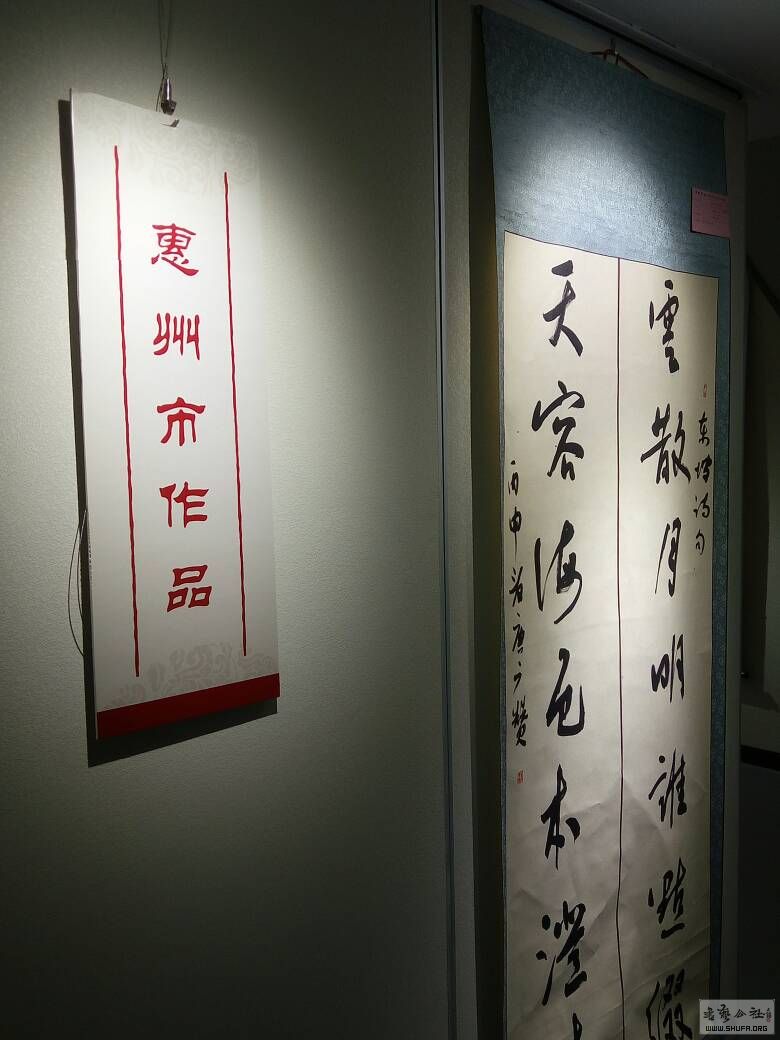 惠州市作品
东坡诗句
雲散月明誰點綴
天容海色本澄
丙申
書藝公社
WWW.SHUFA.ORG